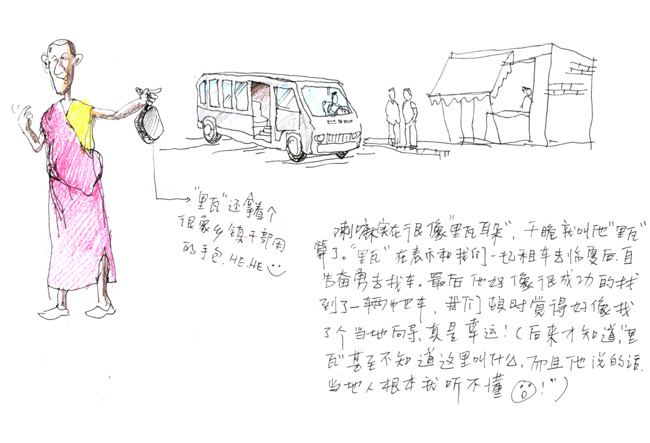 "里瓦"还拿着个
很象乡镇干部用
的手包. HE.HE
喇嘛实在很像"里瓦耳朵", 干脆就叫他"里瓦"
算了。"里瓦"在表示和我们一起租车去临夏后,自
告奋勇去找车。最后他好像很成功的找
到了一辆中巴车, 我们顿时觉得好像找
了个当地向导,真是幸运!(后来才知道,"里
瓦"甚至不知道这里叫什么,而且他说的话.
当地人根本就听不懂 !")